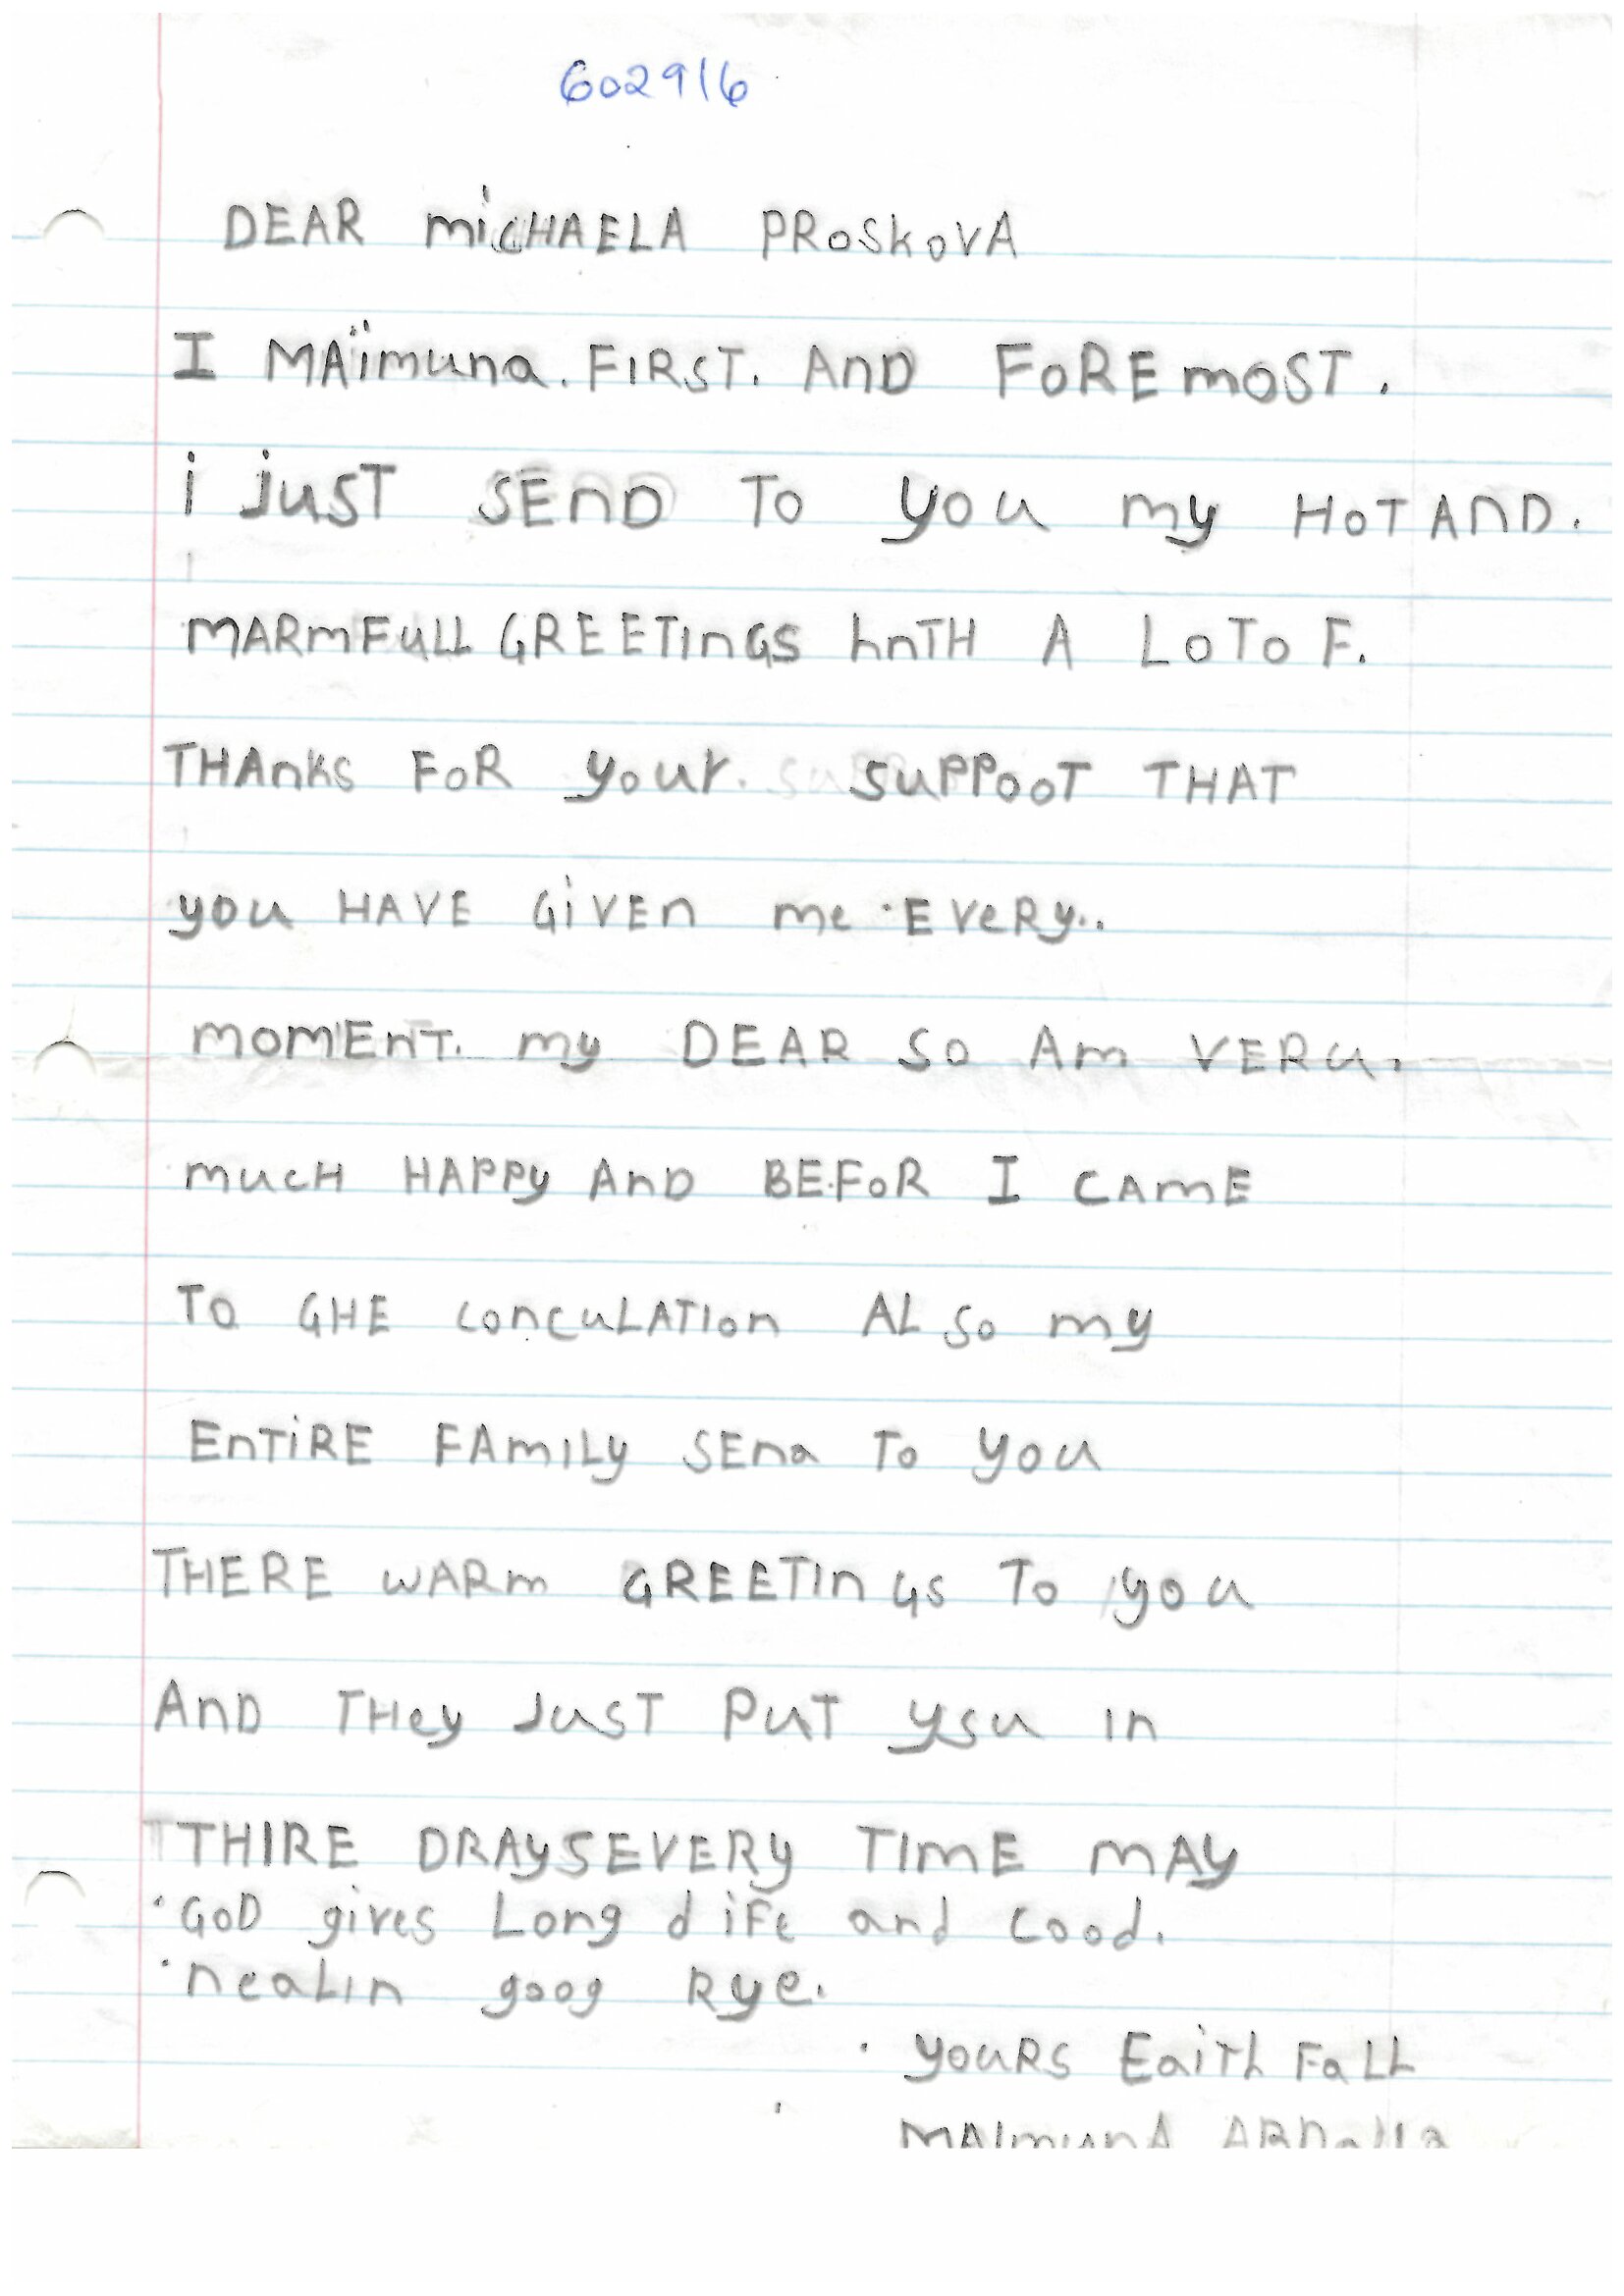 602916
DEAR miCHAELA PROSKOVA
I MAimuna. FIRST. AnD FOREmOST.
i JuST SEnD To you my HOT AnD.
MARmFuLL GREETinGS hnTH A LoTo F.
THAnKS FOR your. SuPPooT THAT
you HAVE GiVEn me EVeRy..
moMEnT. my DEAR So Am VERu.
mucH HAPPy AnD BE.FoR I CAmE
To GHE conCuLATIon AL So my
EnTiRE FAmiLy SEna To you
THERE WARm GREETInGS To you
AnD THey JuST PuT ysu in
THIRE DRAySEVERy TImE mAy
GoD gives Long dife and cood.
neaLin goog Rye.
youRS EaiTh FaLL
MAImunA ABDalla